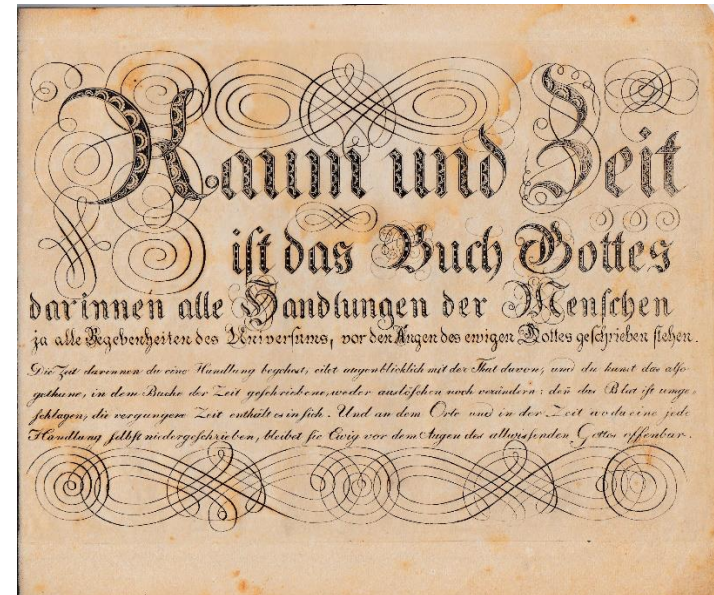 Raum und Zeit
ist das Buch Gottes
darinnen alle Handlungen der Menschen
ja alle Begebenheiten des Universums, vor den Augen des ewigen Gottes geschrieben stehen.
Die Zeit darinnen du eine Handlung begehest, eilet augenblicklich mit der That davon, und du kanst das also
gethane, in dem Buche der Zeit geschriebene, weder auslöschen noch verändern: deñ das Blat ist umge,
schlagen, die vergangene Zeit enthält es in sich. Und an dem Orte und in der Zeit wo da eine jede
Handlung selbst niedergeschrieben, bleibet sie Ewig vor dem Augen des allwissenden Gottes offenbar.